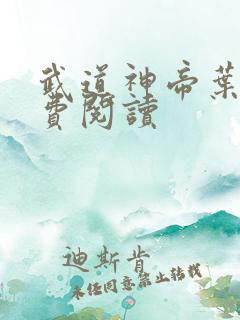 武道神帝葉
費閱讀
迪斯肯
未经同意禁止转载